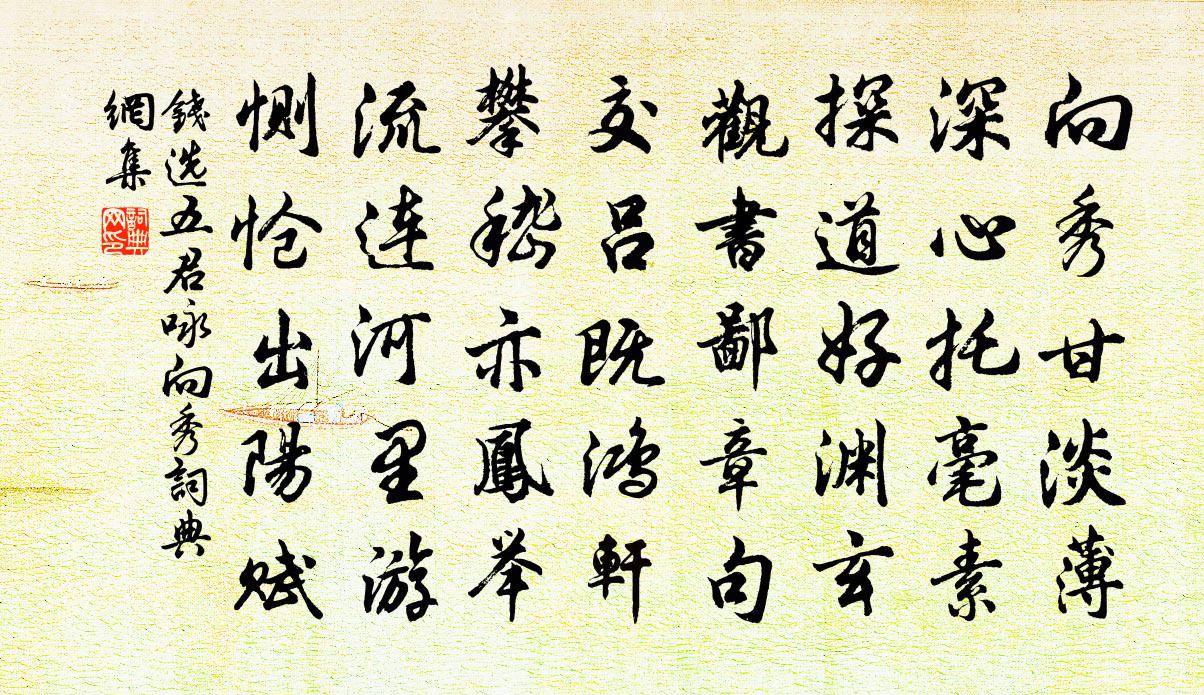 向秀甘淡薄
深心托毫素
探道好渊玄
觀書鄙章句
交吕既鸿軒
攀嵇亦鳳举
流连河里游
恻怆出陽赋
錢选五君咏向秀詞典
網集
詞典网印